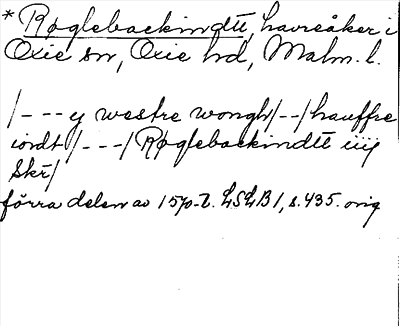 * Røglebackindtt, havreåker i
Oxie sn, Oxie hd, Malm. l.
/--- y westre wongh/--/hauffre
iordt/---/Røglebackindtt iiij
Skr/
förra delen av 1570-t. LSLB1, s. 435. orig